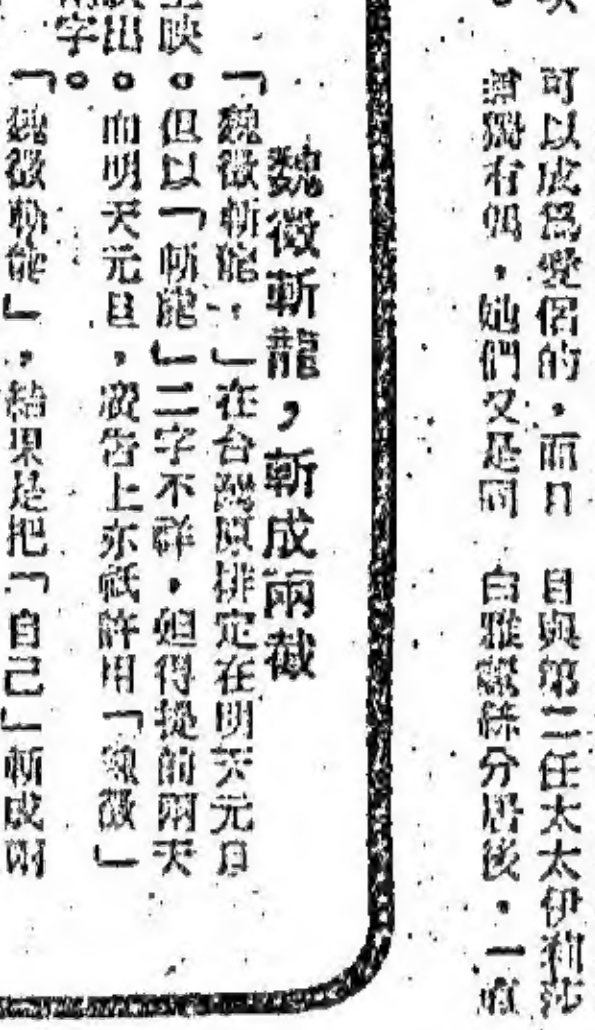 可以成爲愛侶的,而且
都獨有嗎,她們又是同
目與第二任太太伊莉莎
白雅蘭絲分居後,一直
魏徵斬龍,斬成兩截
「魏徵斬龍,」在台灣原排定在明天元旦
上映。但以「斬龍」二字不祥,但得提前兩天
映出。而明天元旦,廣告上亦祇許用「魏徵」
兩字。
「魏徵斬龍」,結果是把「自己」斬成兩